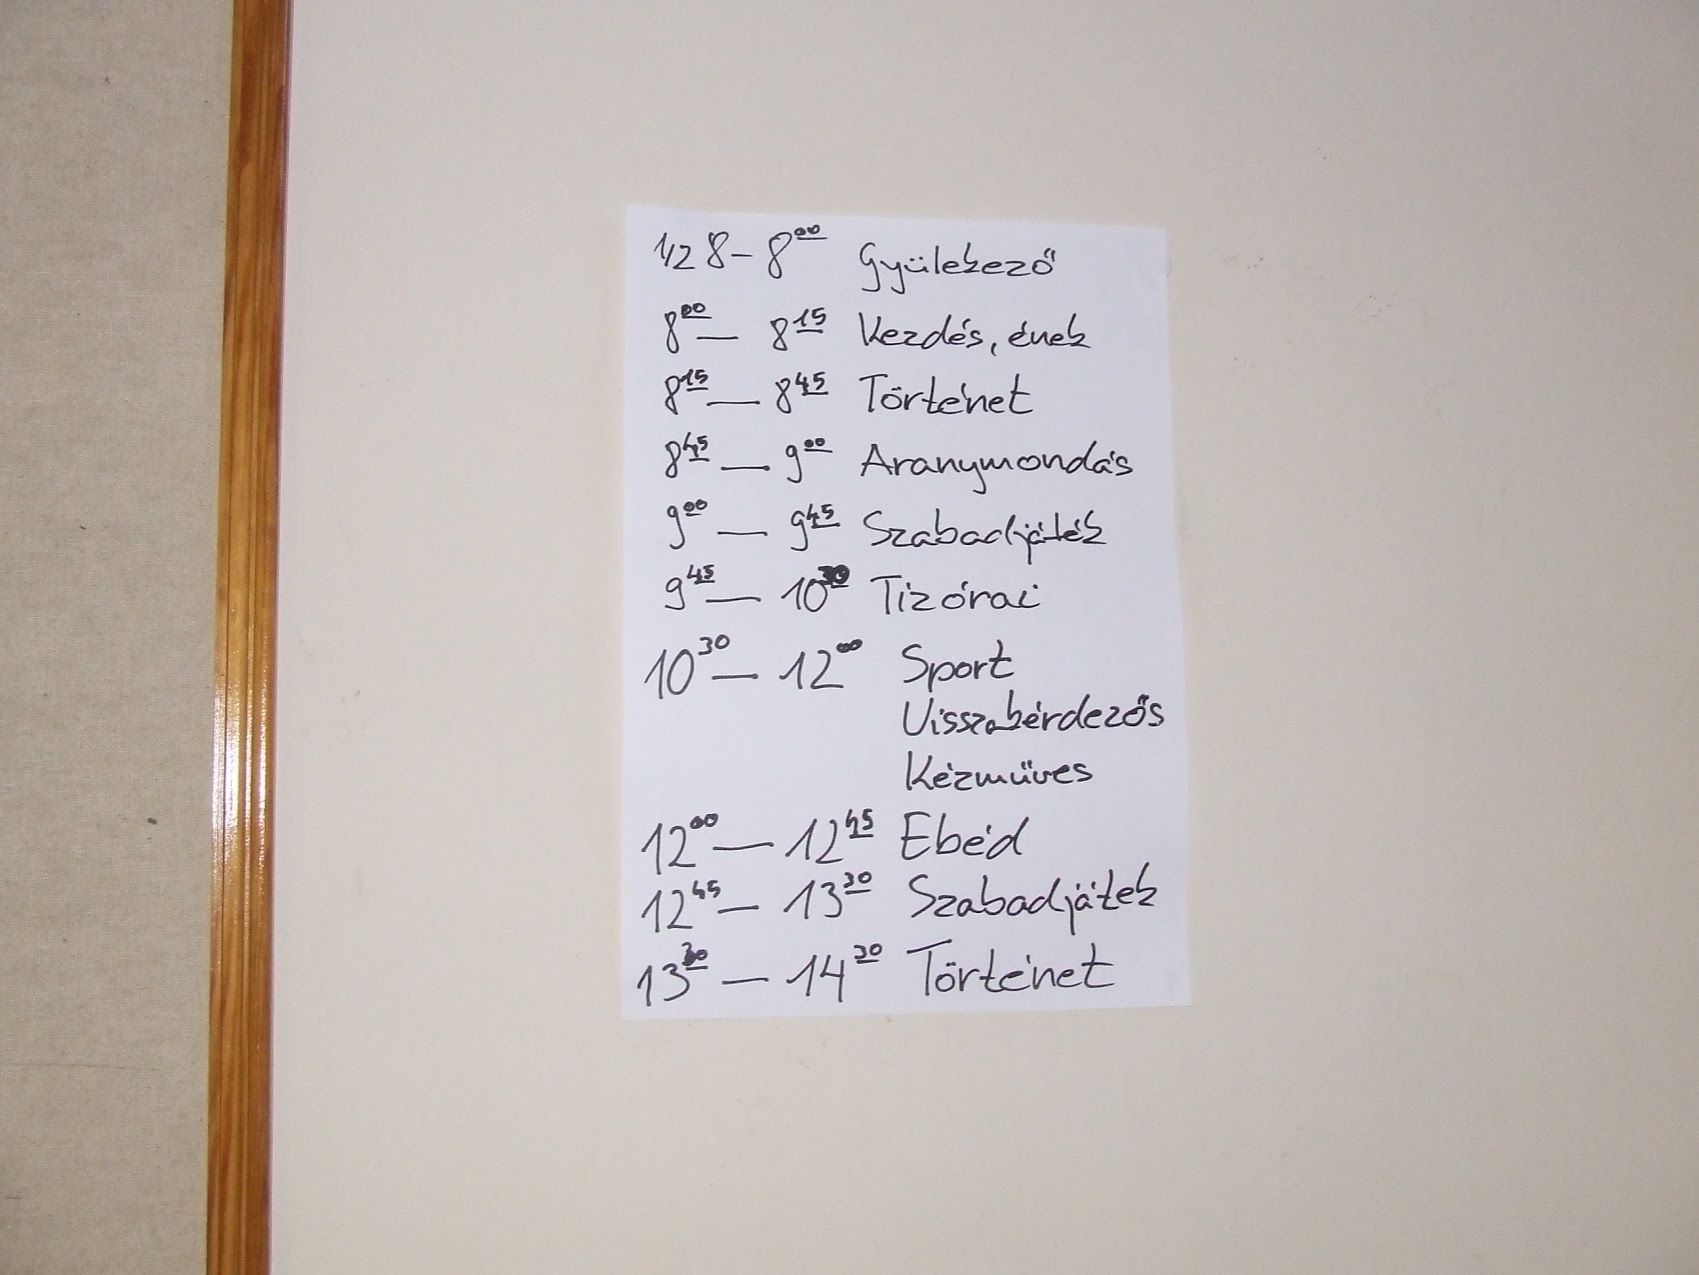 1/2 8 - 8⁰⁰ Gyülekező
8⁰⁰ — 8¹⁵ Kezdés, ének
8¹⁵ — 8⁴⁵ Történet
8⁴⁵ — 9⁰⁰ Aranymondás
9⁰⁰ — 9⁴⁵ Szabadjáték
9⁴⁵ — 10³⁰ Tízórai
10³⁰ — 12⁰⁰ Sport
Visszakérdezős
Kézműves
12⁰⁰ — 12⁴⁵ Ebéd
12⁴⁵ — 13³⁰ Szabadjáték
13³⁰ — 14³⁰ Történet